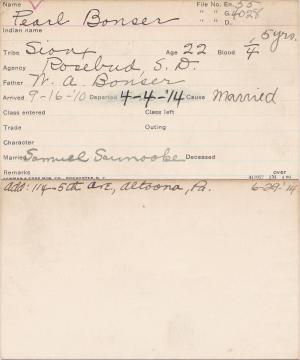 Name Pearl Bonser File No. En. 55
" " G. 4028
Indian name " " D. 5yrs.
Tribe Sioux Age 22 Blood 1/4
Agency Rosebud, S. D.
Father W. A. Bonser
Arrived 9-16-'10 Departed 4-4-'14 Cause Married
Class entered Class left
Trade Outing
Character
Married Samuel Saunooke Deceased
Remarks over
Add: 114-5th Ave, Altoona, Pa. 6-29-'14